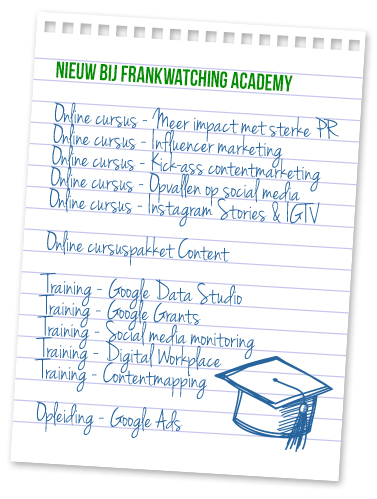 NIEUW BIJ FRANKWATCHING ACADEMY
Online cursus - Meer impact met sterke PR
Online cursus - Influencer marketing
Online cursus - Kick-ass contentmarketing
Online cursus - Opvallen op social media
Online cursus - Instagram Stories & IGTV
Online cursuspakket Content
Training - Google Data Studio
Training - Google Grants
Training - Social media monitoring
Training - Digital Workplace
Training - Contentmapping
Opleiding - Google Ads